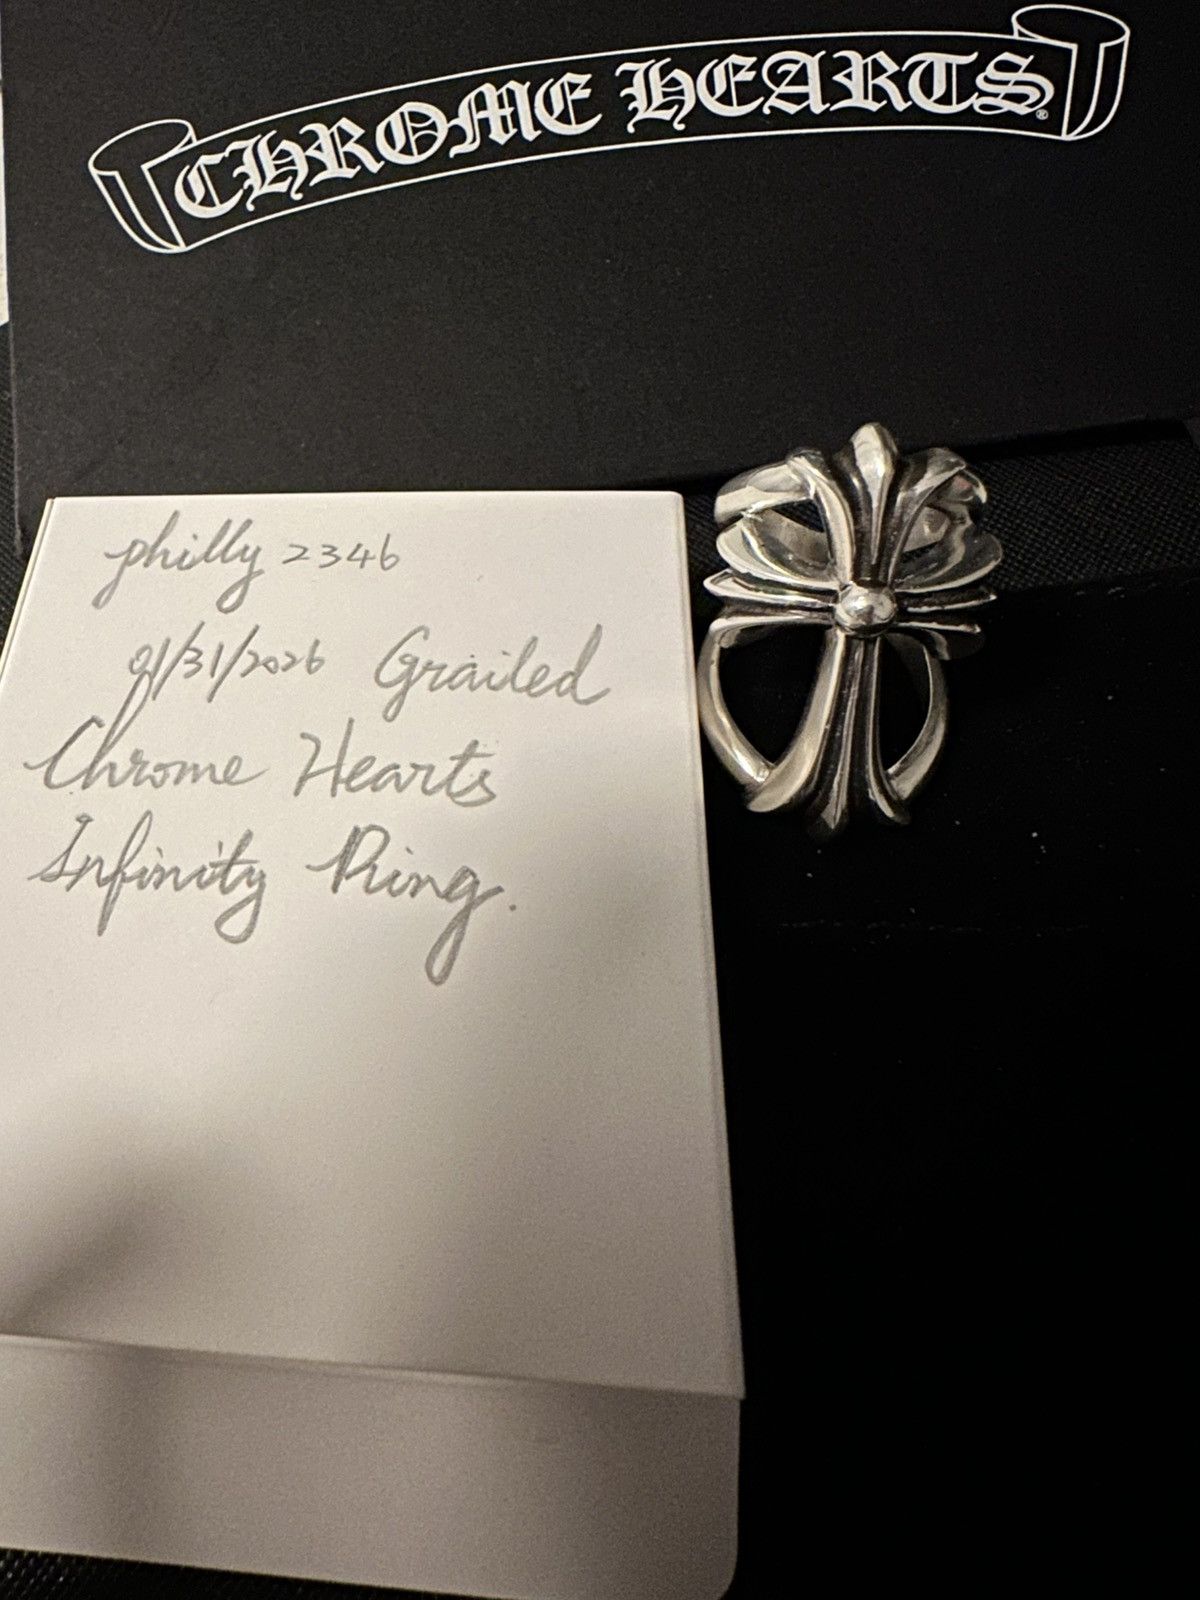 CHROME HEARTS®
philly 2346
01/31/2026 Grailed
Chrome Hearts
Infinity Ring.